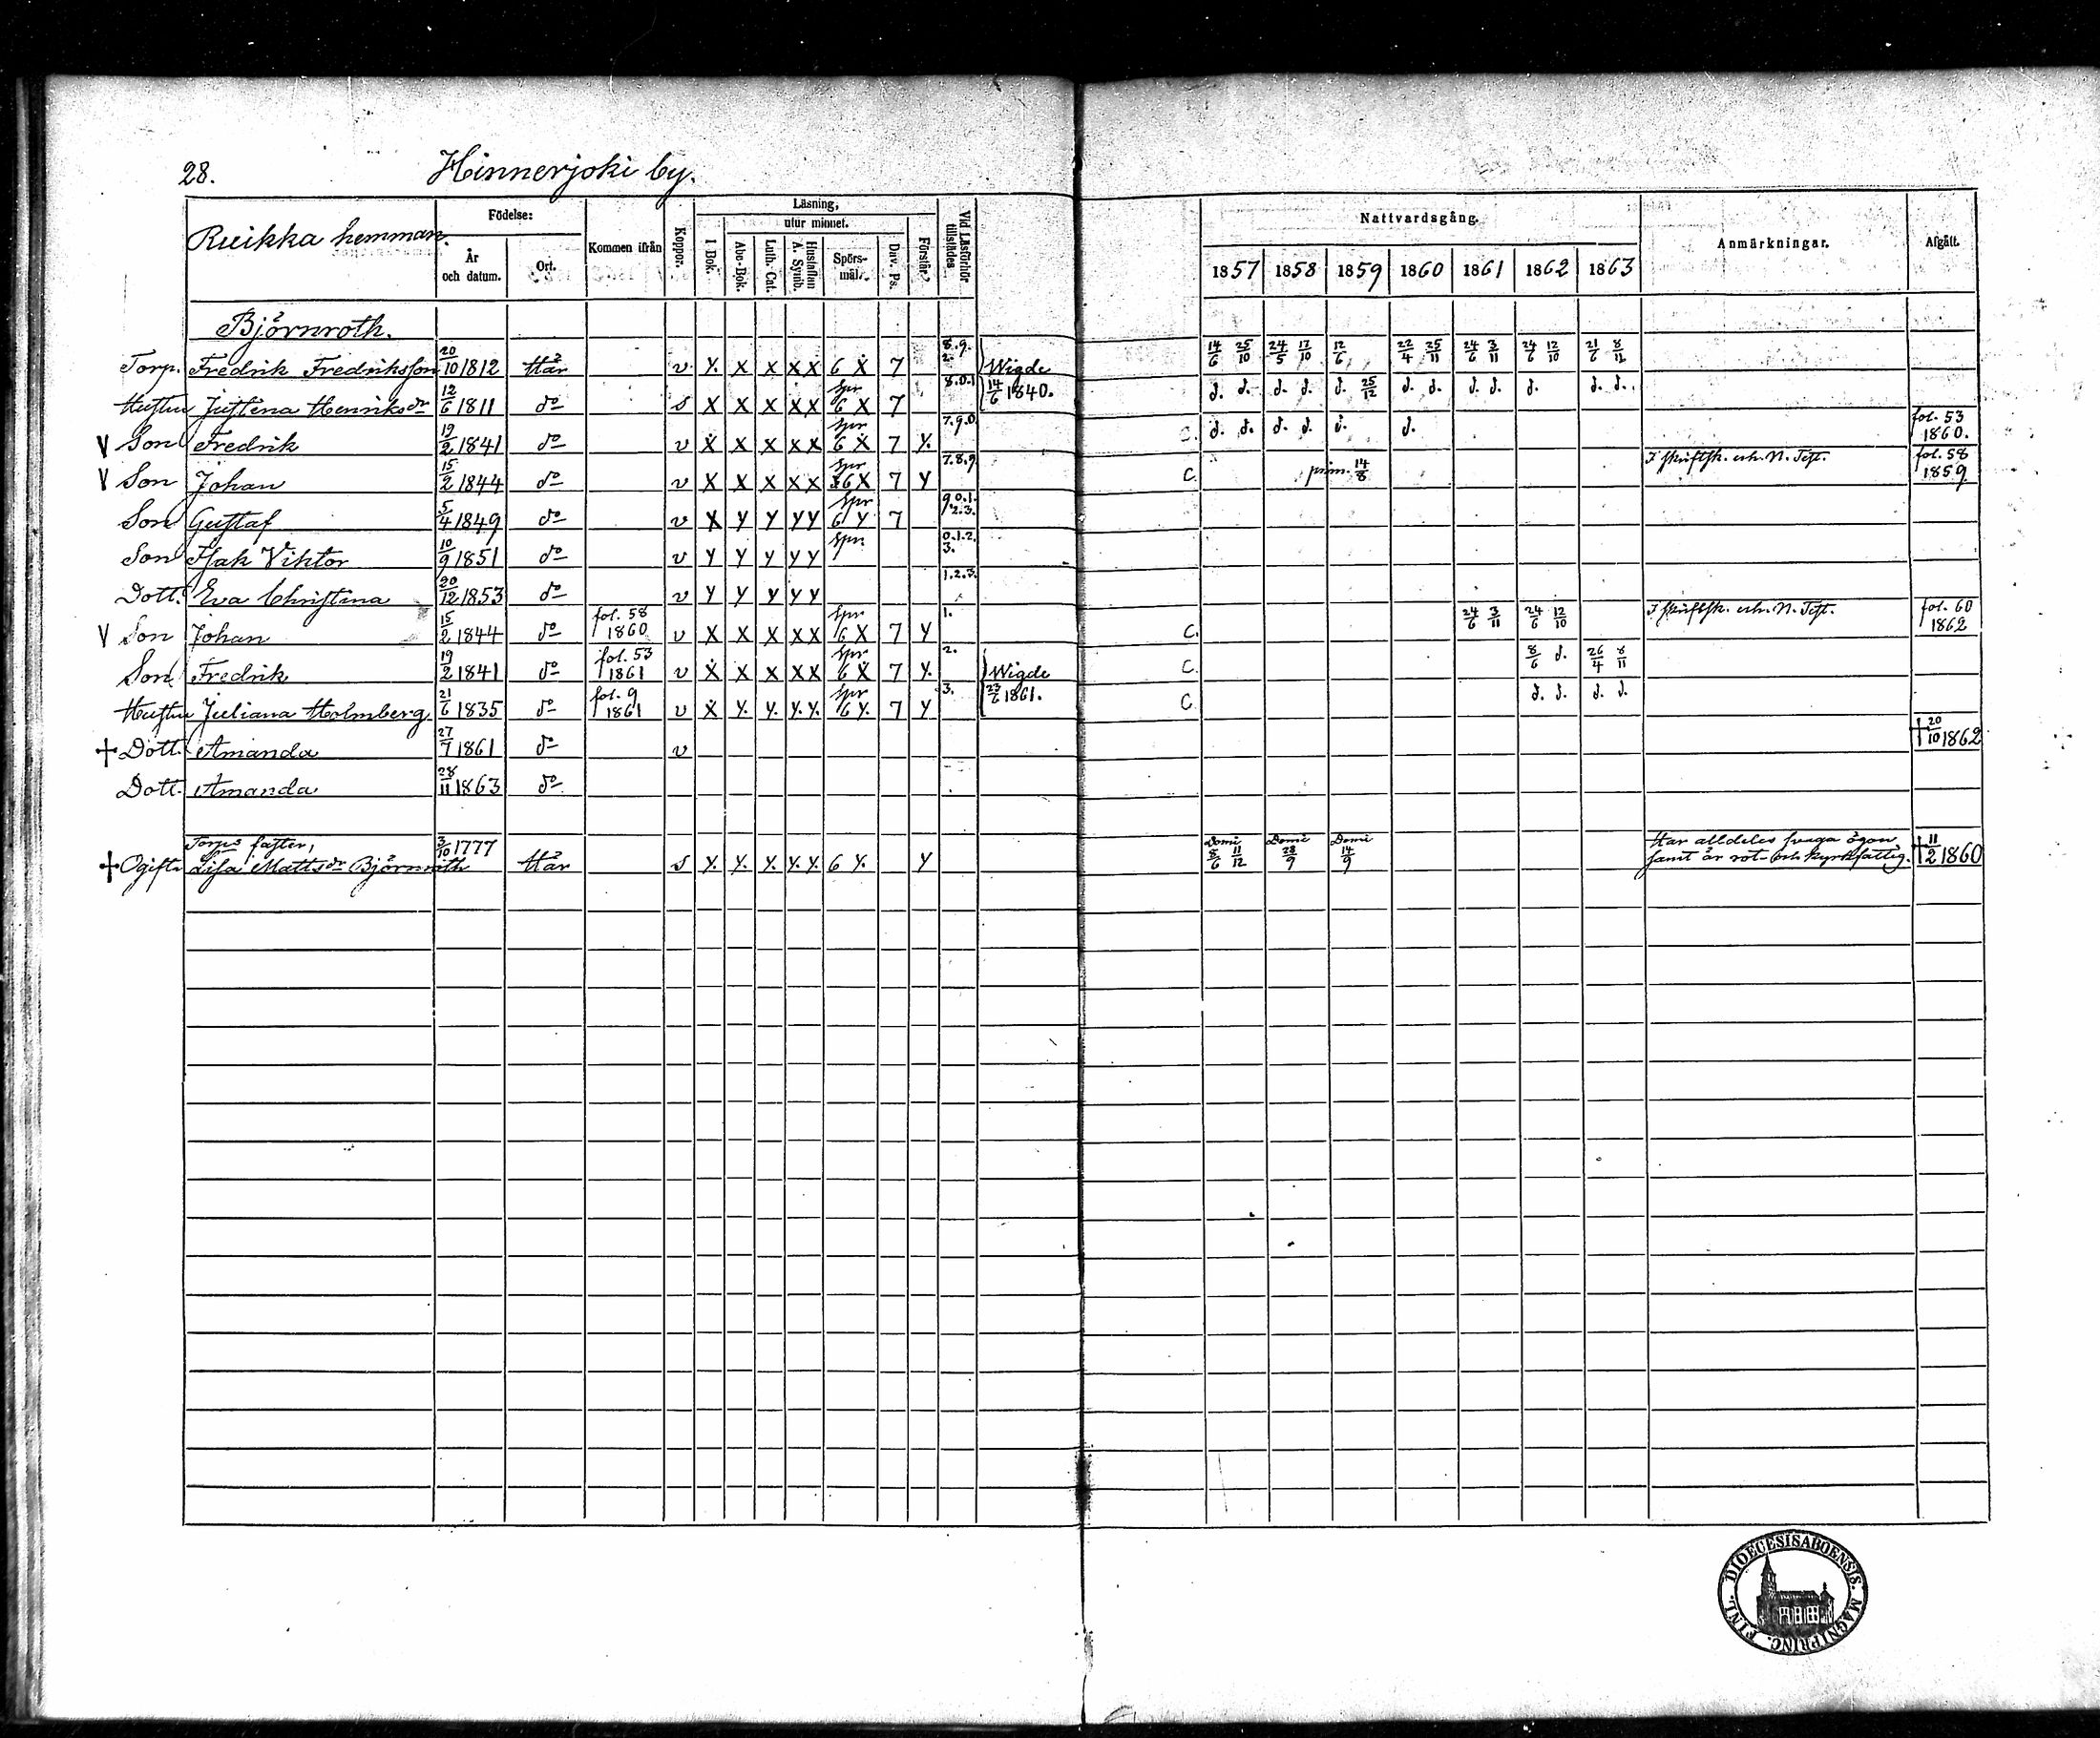 28. Hinnerjoki by.
Ruikka hemman.
Födelse:
År och datum.
Ort.
Kommen ifrån
Koppor.
Läsning,
I Bok.
utur minnet.
Abc-Bok.
Luth. Cat.
Hustaflan A. Symb.
Spörsmål.
Dav. Ps.
Förstår?
Vid Läsförhör tillstädes
Nattvardsgång.
1857 1858 1859 1860 1861 1862 1863
Anmärkningar.
Afgått.
Björnroth.
Torp. Fredrik Fredriksson 20/10 1812 Här v Y. X X X X 6 X 7 8.9. 2. Wigde 14/6 25/10 24/5 17/10 12/6 22/4 25/11 24/6 3/11 24/6 12/10 21/6 8/12
Hustru Justina Henriksdr 12/6 1811 do s X X X X X Spr 6 X 7 8.0.1 14/6 1840. d. d. d. d. d. 25/12 d. d. d. d. d. d. d.
V Son Fredrik 19/2 1841 do v X X X X X Spr 6 X 7 Y. 7.9.0. C. d. d. d. d. d. d. fol. 53 1860.
V Son Johan 15/2 1844 do v X X X X X Spr 6 X 7 Y 7.8.9. C. prim. 14/8 I skriftsk. erh. N. Test. fol. 58 1859.
Son Gustaf 5/4 1849 do v X Y Y Y Y Spr 6 Y 7 9.0.1. 2.3.
Son Isak Viktor 10/9 1851 do v Y Y Y Y Y Spr. 0.1.2. 3.
Dott. Eva Christina 20/12 1853 do v Y Y Y Y Y 1.2.3.
V Son Johan 15/2 1844 do fol. 58 1860 v X X X X X Spr 6 X 7 Y 1. C. 24/6 3/11 24/6 12/10 I skriftsk. erh. N. Test. fol. 60 1862
Son Fredrik 19/2 1841 do fol. 53 1861 v X X X X X Spr 6 X 7 Y. 2. Wigde C. 8/6 d. 26/4 8/11
Hustru Juliana Holmberg. 21/6 1835 do fol. 9 1861 v X Y. Y. Y. Y. Spr 6 Y. 7 Y 3. 23/6 1861. C. d. d. d. d.
† Dott. Amanda 27/7 1861 do v † 20/10 1862
Dott. Amanda 28/11 1863 do
Torps faster,
† Ogifta Lisa Mattsdr Björnroth 3/10 1777 Här s Y. Y. Y. Y. Y. 6 Y. Y Domi 8/6 11/12 Domi 28/9 Domi 14/9 Har alldeles svaga ögon, samt är rot- och kyrkfattig. † 11/2 1860
DIOECESIS ABOENSIS. MAGNI PRINC. FINL.